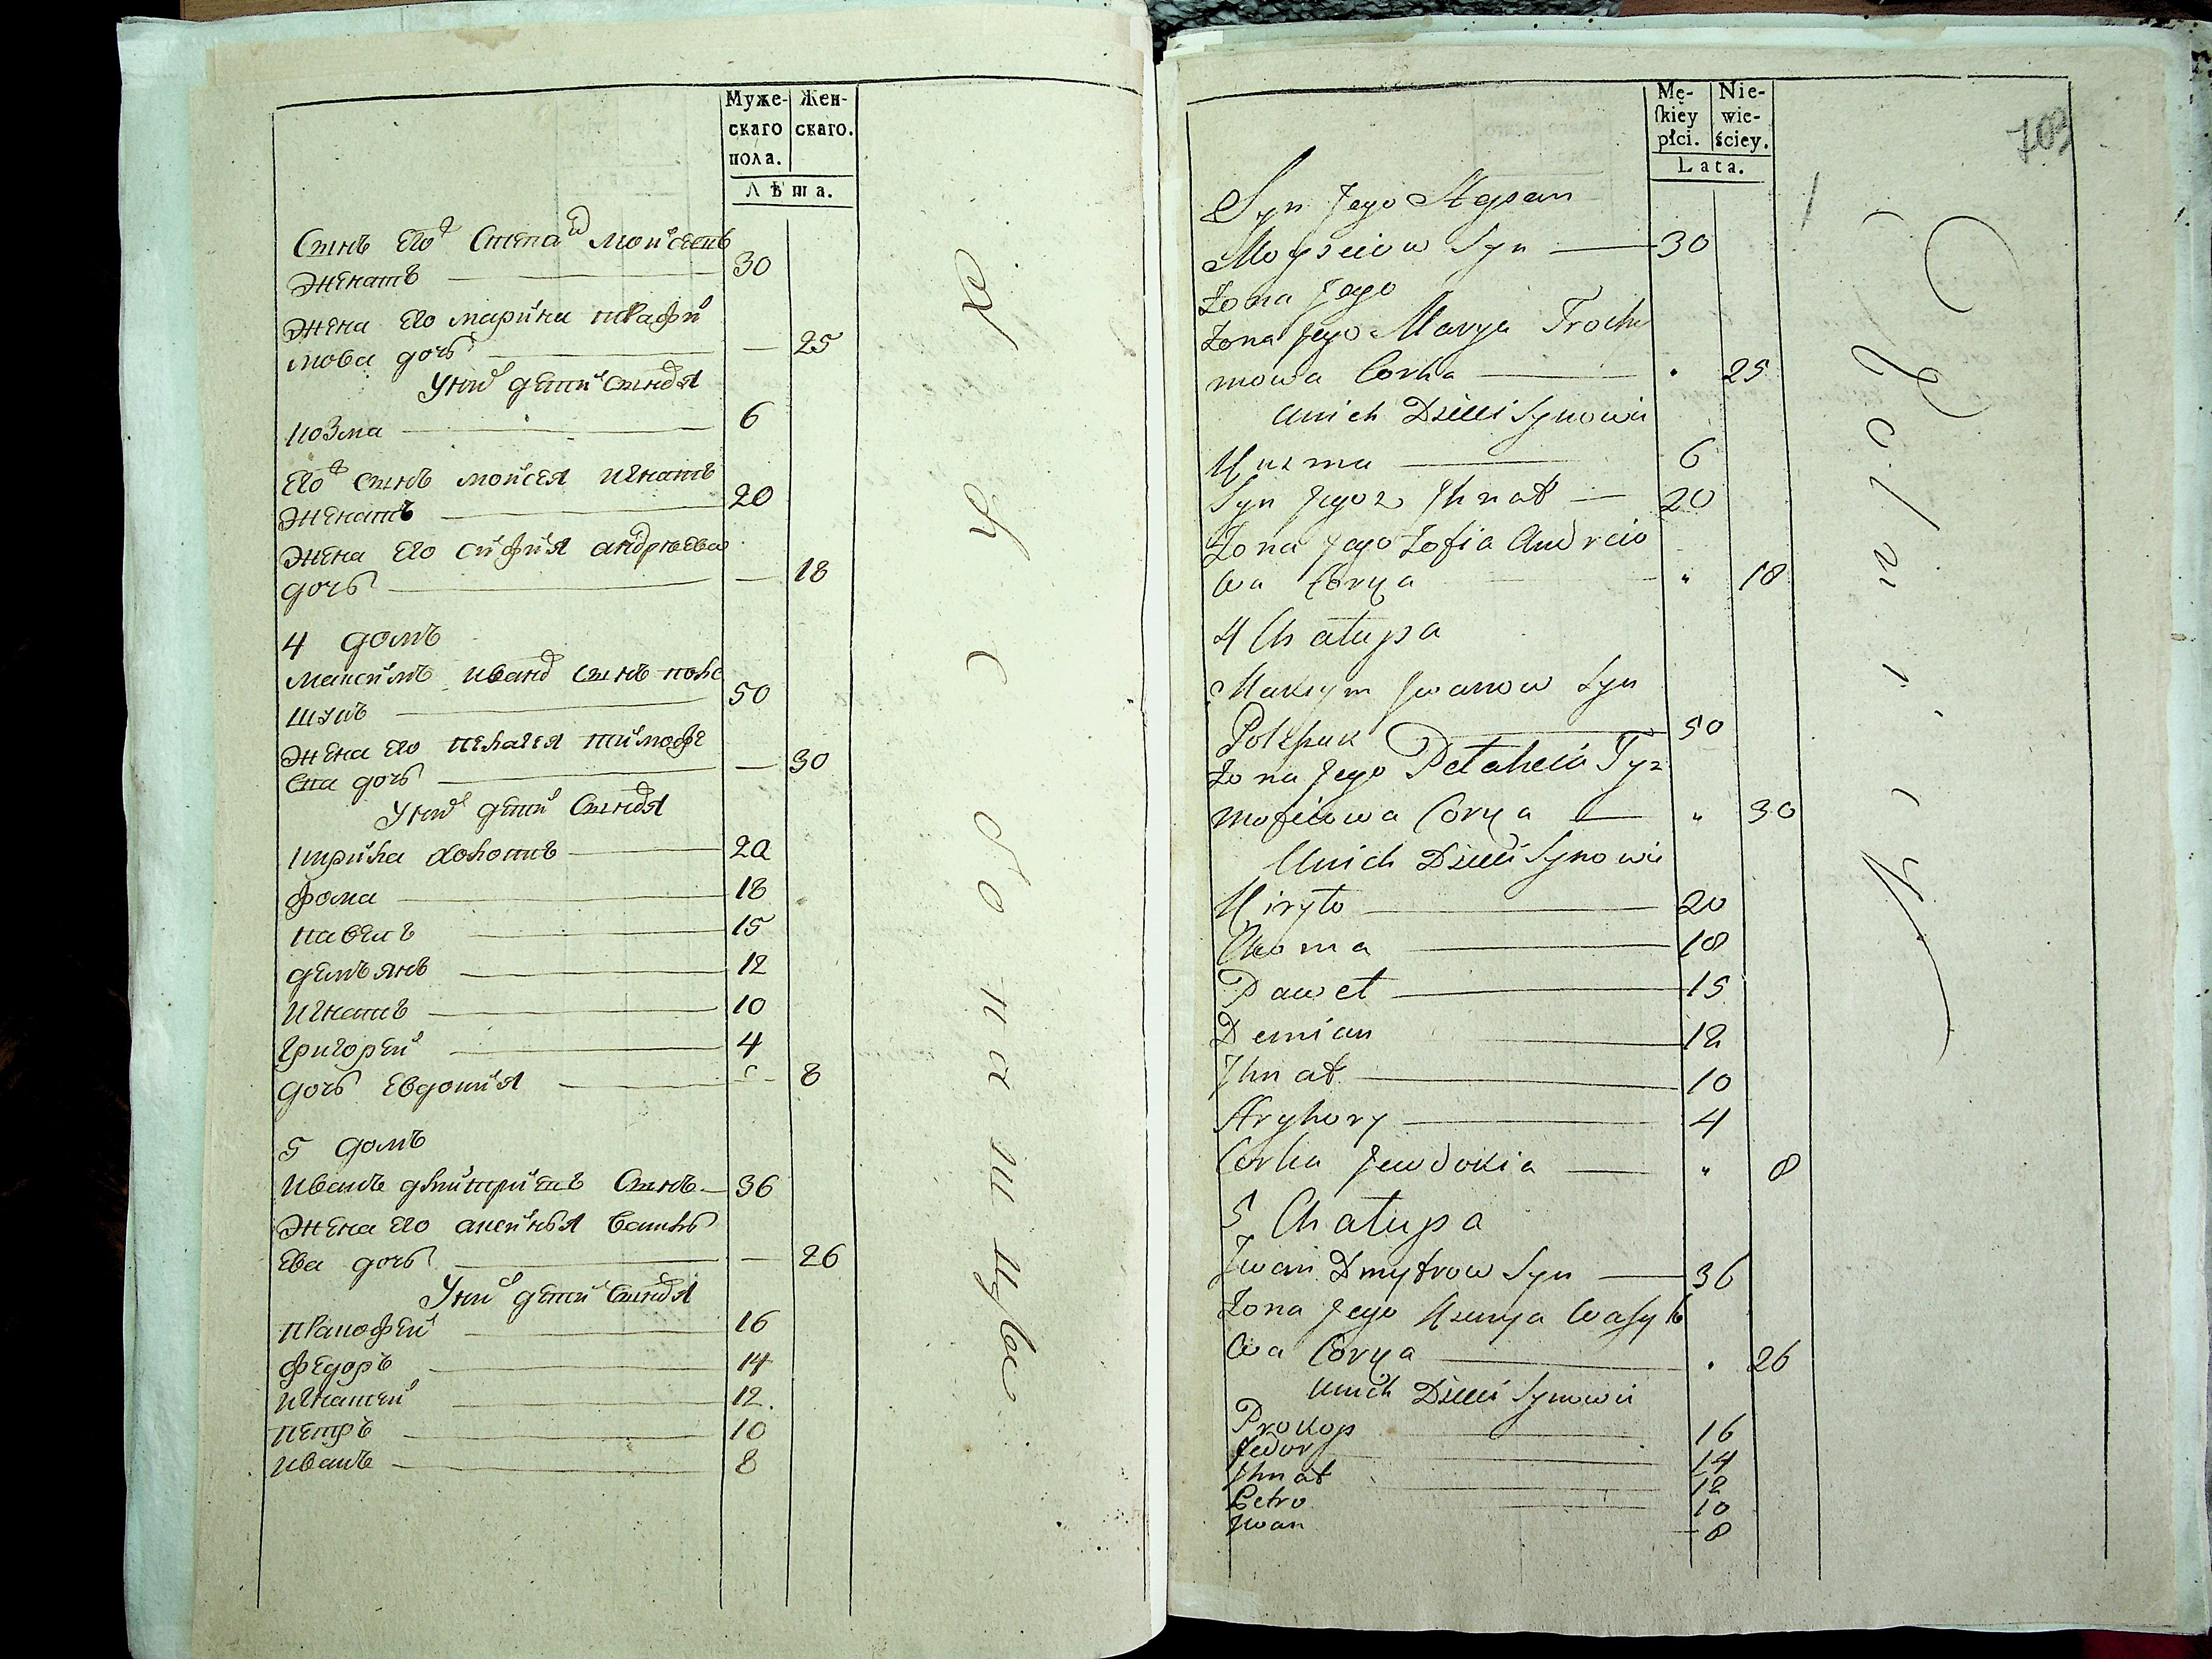 Муже-
скаго
пола.
Жен-
скаго.
Лѣта.
Сынъ его Степанъ Мойсеевъ
женатъ — 30
жена его марина трафи
мова дочь — 25
у них дети сыновя
козма — 6
его сынъ мойсея игнатъ
женатъ — 20
жена его софия андреева
дочь — 18
4 домъ
максимъ иванов сынъ
50
жена его пелагея тимофе
ева дочь — 30
у них дети сыновя
кирила холостъ — 20
фома — 18
павелъ — 15
демьянъ — 12
игнатъ — 10
григорей — 4
дочь евдокия — 8
5 домъ
иванъ дмитриевъ сынъ — 36
жена его аксинья василь
ева дочь — 26
у них дети сыновя
пракофей — 16
федоръ — 14
игнатей — 12.
петръ — 10
иванъ — 8
Mę-
ſkiey
płci.
Nie-
wie-
ściey.
Lata.
703
Syn Jego Stepan
Moyseiow Syn — 30
Żona Jego
Żona Jego Marya Trochy
mowa Corka — 25
Unich Dzieci Synowie
Kuzma — 6
Syn Jego 2 Ihnat — 20
Żona Jego Zofia Andreio
wa Corka — 18
4 Chałupa
Maksym Iwanow Syn
50
Żona Jego Pełaheia Ty
mofieiowa Corka — 30
Unich Dzieci Synowie
Kiryło — 20
Choma — 18
Paweł — 15
Demian — 12
Ihnat — 10
Hryhory — 4
Corka Jewdokia — 8
5 Chałupa
Iwan Dmytrow Syn — 36
Żona Jego Ksenya Wasyle
wa Corka — 26
Unich Dzieci Synowie
Prokop — 16
Fedor — 14
Ihnat — 12
Petro — 10
Iwan — 8